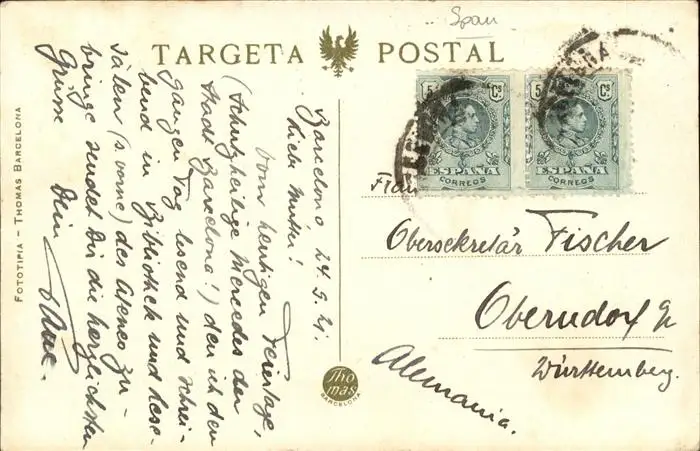 Span
TARGETA POSTAL
Barcelona, 24.9.21.
Liebe Mutter!
Vom heutigen Feiertage,
(Schutzheilige Mercedes der
Stadt Barcelona!) den ich den
ganzen Tag lesend und schrei-
bend in Bibliothek und Lese-
sälen (s. vorne) des Ateneo zu-
bringe sendet Dir die herzlichsten
Grüsse Dein
5 Cs
ESPAÑA
CORREOS
5 Cs
ESPAÑA
CORREOS
Frau
Obersekretär Fischer
Oberndorf a/
Württemberg.
Alemania.
FOTOTIPIA - THOMAS BARCELONA
Thomas
BARCELONA